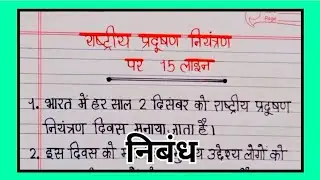 Page
राष्ट्रीय प्रदूषण नियंत्रण
पर 15 लाइन
1. भारत में हर साल 2 दिसंबर को राष्ट्रीय प्रदूषण
नियंत्रण दिवस मनाया जाता है।
निबंध
2. इस दिवस को उद्देश्य लोगों को